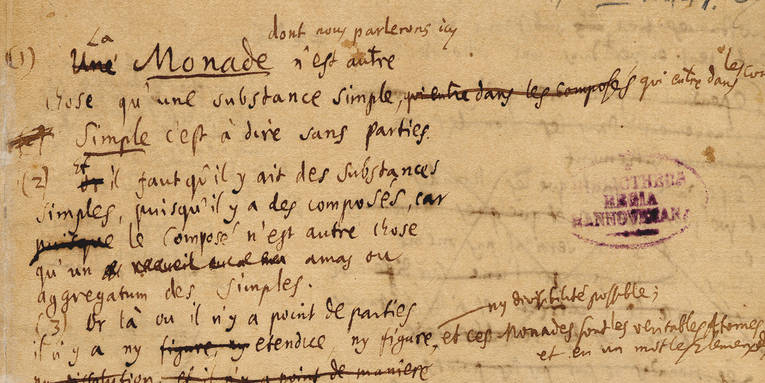 dont nous parlerons icy
La
(1) Une Monade n'est autre
chose qu'une substance simple, qui entre dans les composés qui entre dans les com
Simple c'est à dire sans parties.
(2) Et il faut qu'il y ait des substances
simples, puisqu'il y a des composés, car
puisque le Composé n'est autre chose
qu'un recueil amas ou
aggregatum des Simples.
(3) Or là ou il n'y a point de parties
ny divisibilité possible;
il n'y a ny figure, ny etendue, ny figure, et ces Monades sont les veritables Atomes
et en un mot les Elemens
ny dissolution, et il n'y a point de maniere
BIBLIOTHECA
REGIA
HANNOVERANA